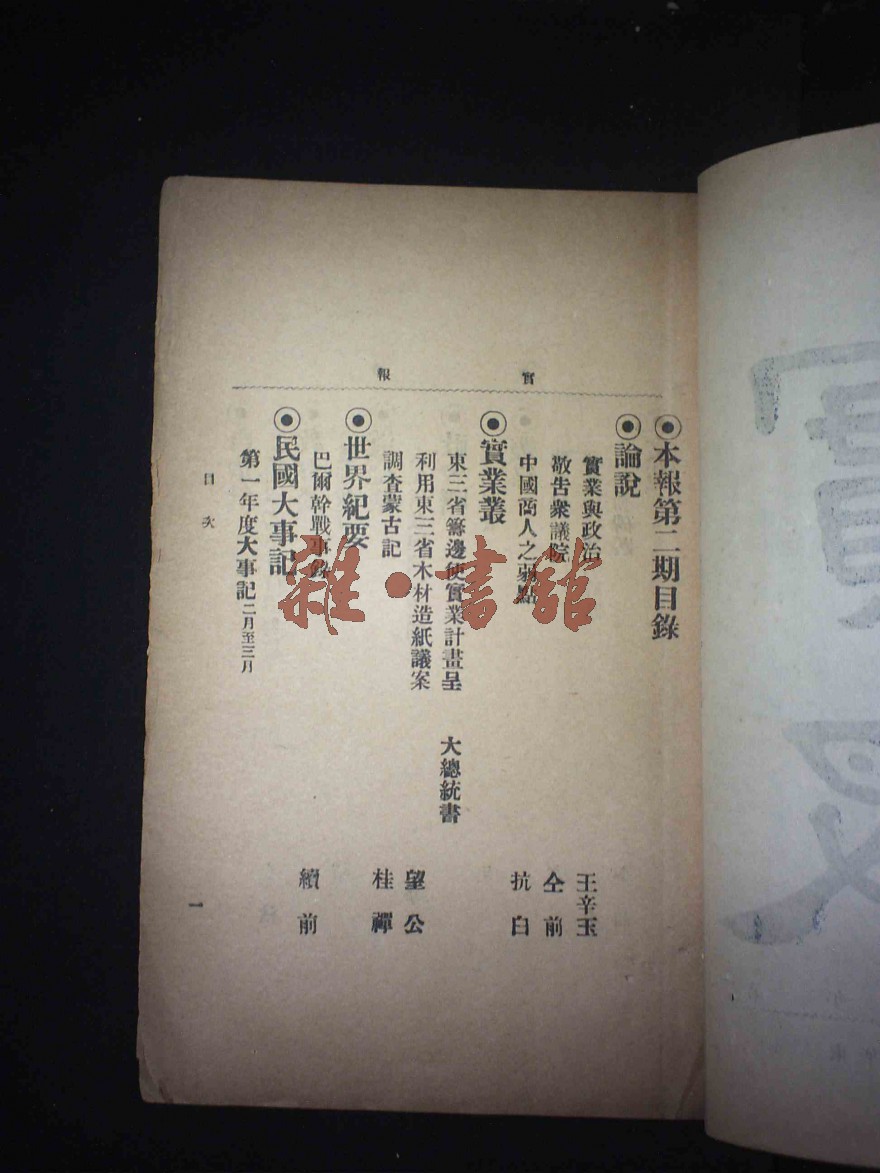 實報
本報第二期目錄
論說
實業與政治 王辛玉
敬告衆議院 仝前
中國商人之弱點 抗白
實業叢
東三省籌邊使實業計畫呈 大總統書
利用東三省木材造紙議案 望公
調查蒙古記 桂禪
世界紀要
巴爾幹戰事錄 續前
民國大事記
第一年度大事記 二月至三月
目次
一
雜·書館